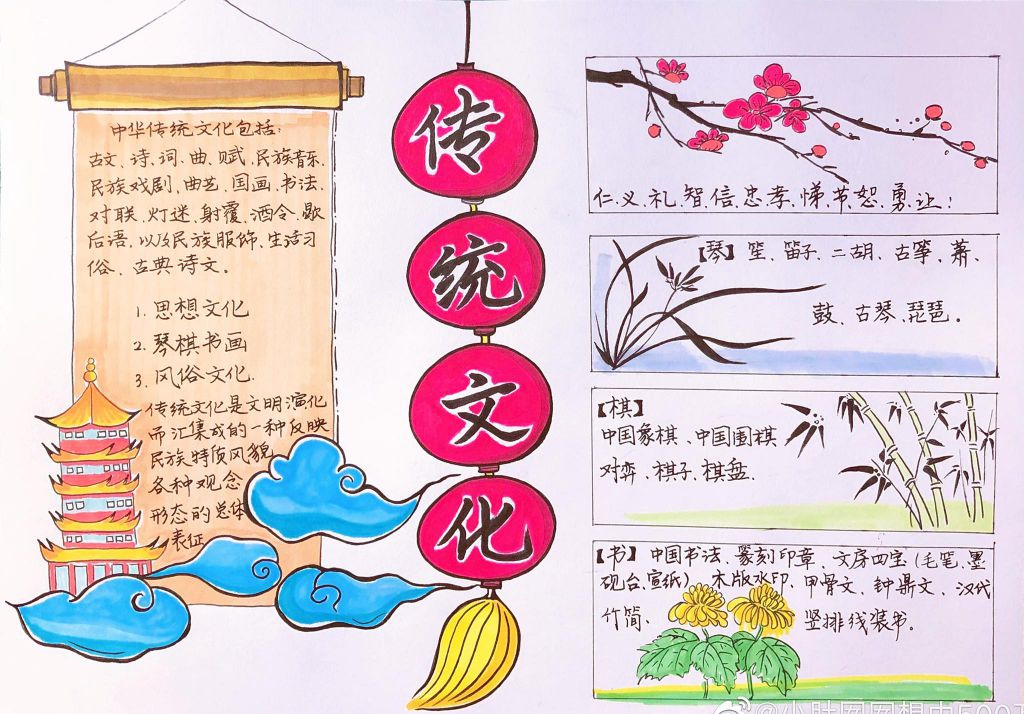 中华传统文化包括:
古文、诗、词、曲、赋、民族音乐、
民族戏剧、曲艺、国画、书法、
对联、灯迷、射覆、酒令、歇
后语、以及民族服饰、生活习
俗、古典诗文。
1. 思想文化
2. 琴棋书画
3. 风俗文化.
传统文化是文明演化
而汇集成的一种反映
民族特质风貌
各种观念
形态的总体
表征
传
统
文
化
仁、义、礼、智、信、忠、孝、悌、节、恕、勇、让!
【琴】笙、笛子、二胡、古筝、萧、
鼓、古琴、琵琶。
【棋】
中国象棋、中国围棋
对弈、棋子、棋盘.
【书】中国书法、篆刻印章、文房四宝(毛笔、墨
砚台、宣纸)、木版水印、甲骨文、钟鼎文、汉代
竹简、竖排线装书。